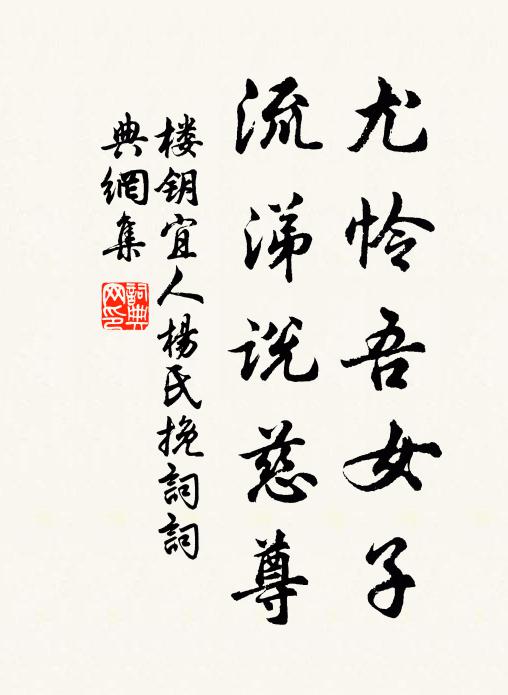 尤怜吾女子
流涕说慈尊
楼钥宜人杨氏挽词词
典網集
詞典网印